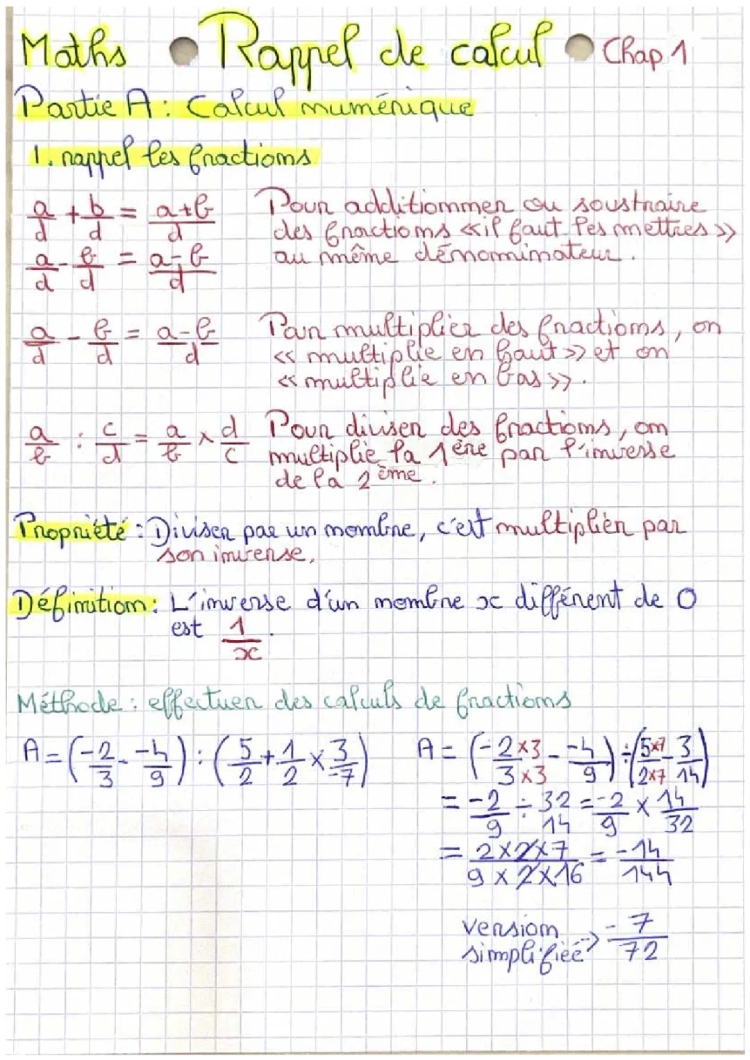 Maths Rappel de calcul Chap 1
Partie A : Calcul numérique
1. rappel les fractions
a/d + b/d = a+b/d Pour additionner ou soustraire
des fractions «il faut les mettres»
a/d - b/d = a-b/d au même dénominateur.
a/d - b/d = a-b/d Par multiplier des fractions, on
« multiplie en haut » et on
« multiplie en bas ».
a/b : c/d = a/b × d/c Pour diviser des fractions, on
multiplie la 1ère par l'inverse
de la 2ème.
Propriété : Diviser par un nombre, c'est multiplier par
son inverse.
Définition : L'inverse d'un nombre x différent de 0
est 1/x.
Méthode : effectuer des calculs de fractions
A = (-2/3 - -4/9) : (5/2 + 1/2 × 3/-7)
A = (-2×3/3×3 - -4/9) ÷ (5×7/2×7 - 3/14)
= -2/9 ÷ 32/14 = -2/9 × 14/32
= 2×2×7/9×2×16 = -14/144
version
simplifiée > - 7/72